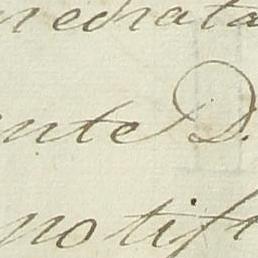 mediata
nte D.
notifi